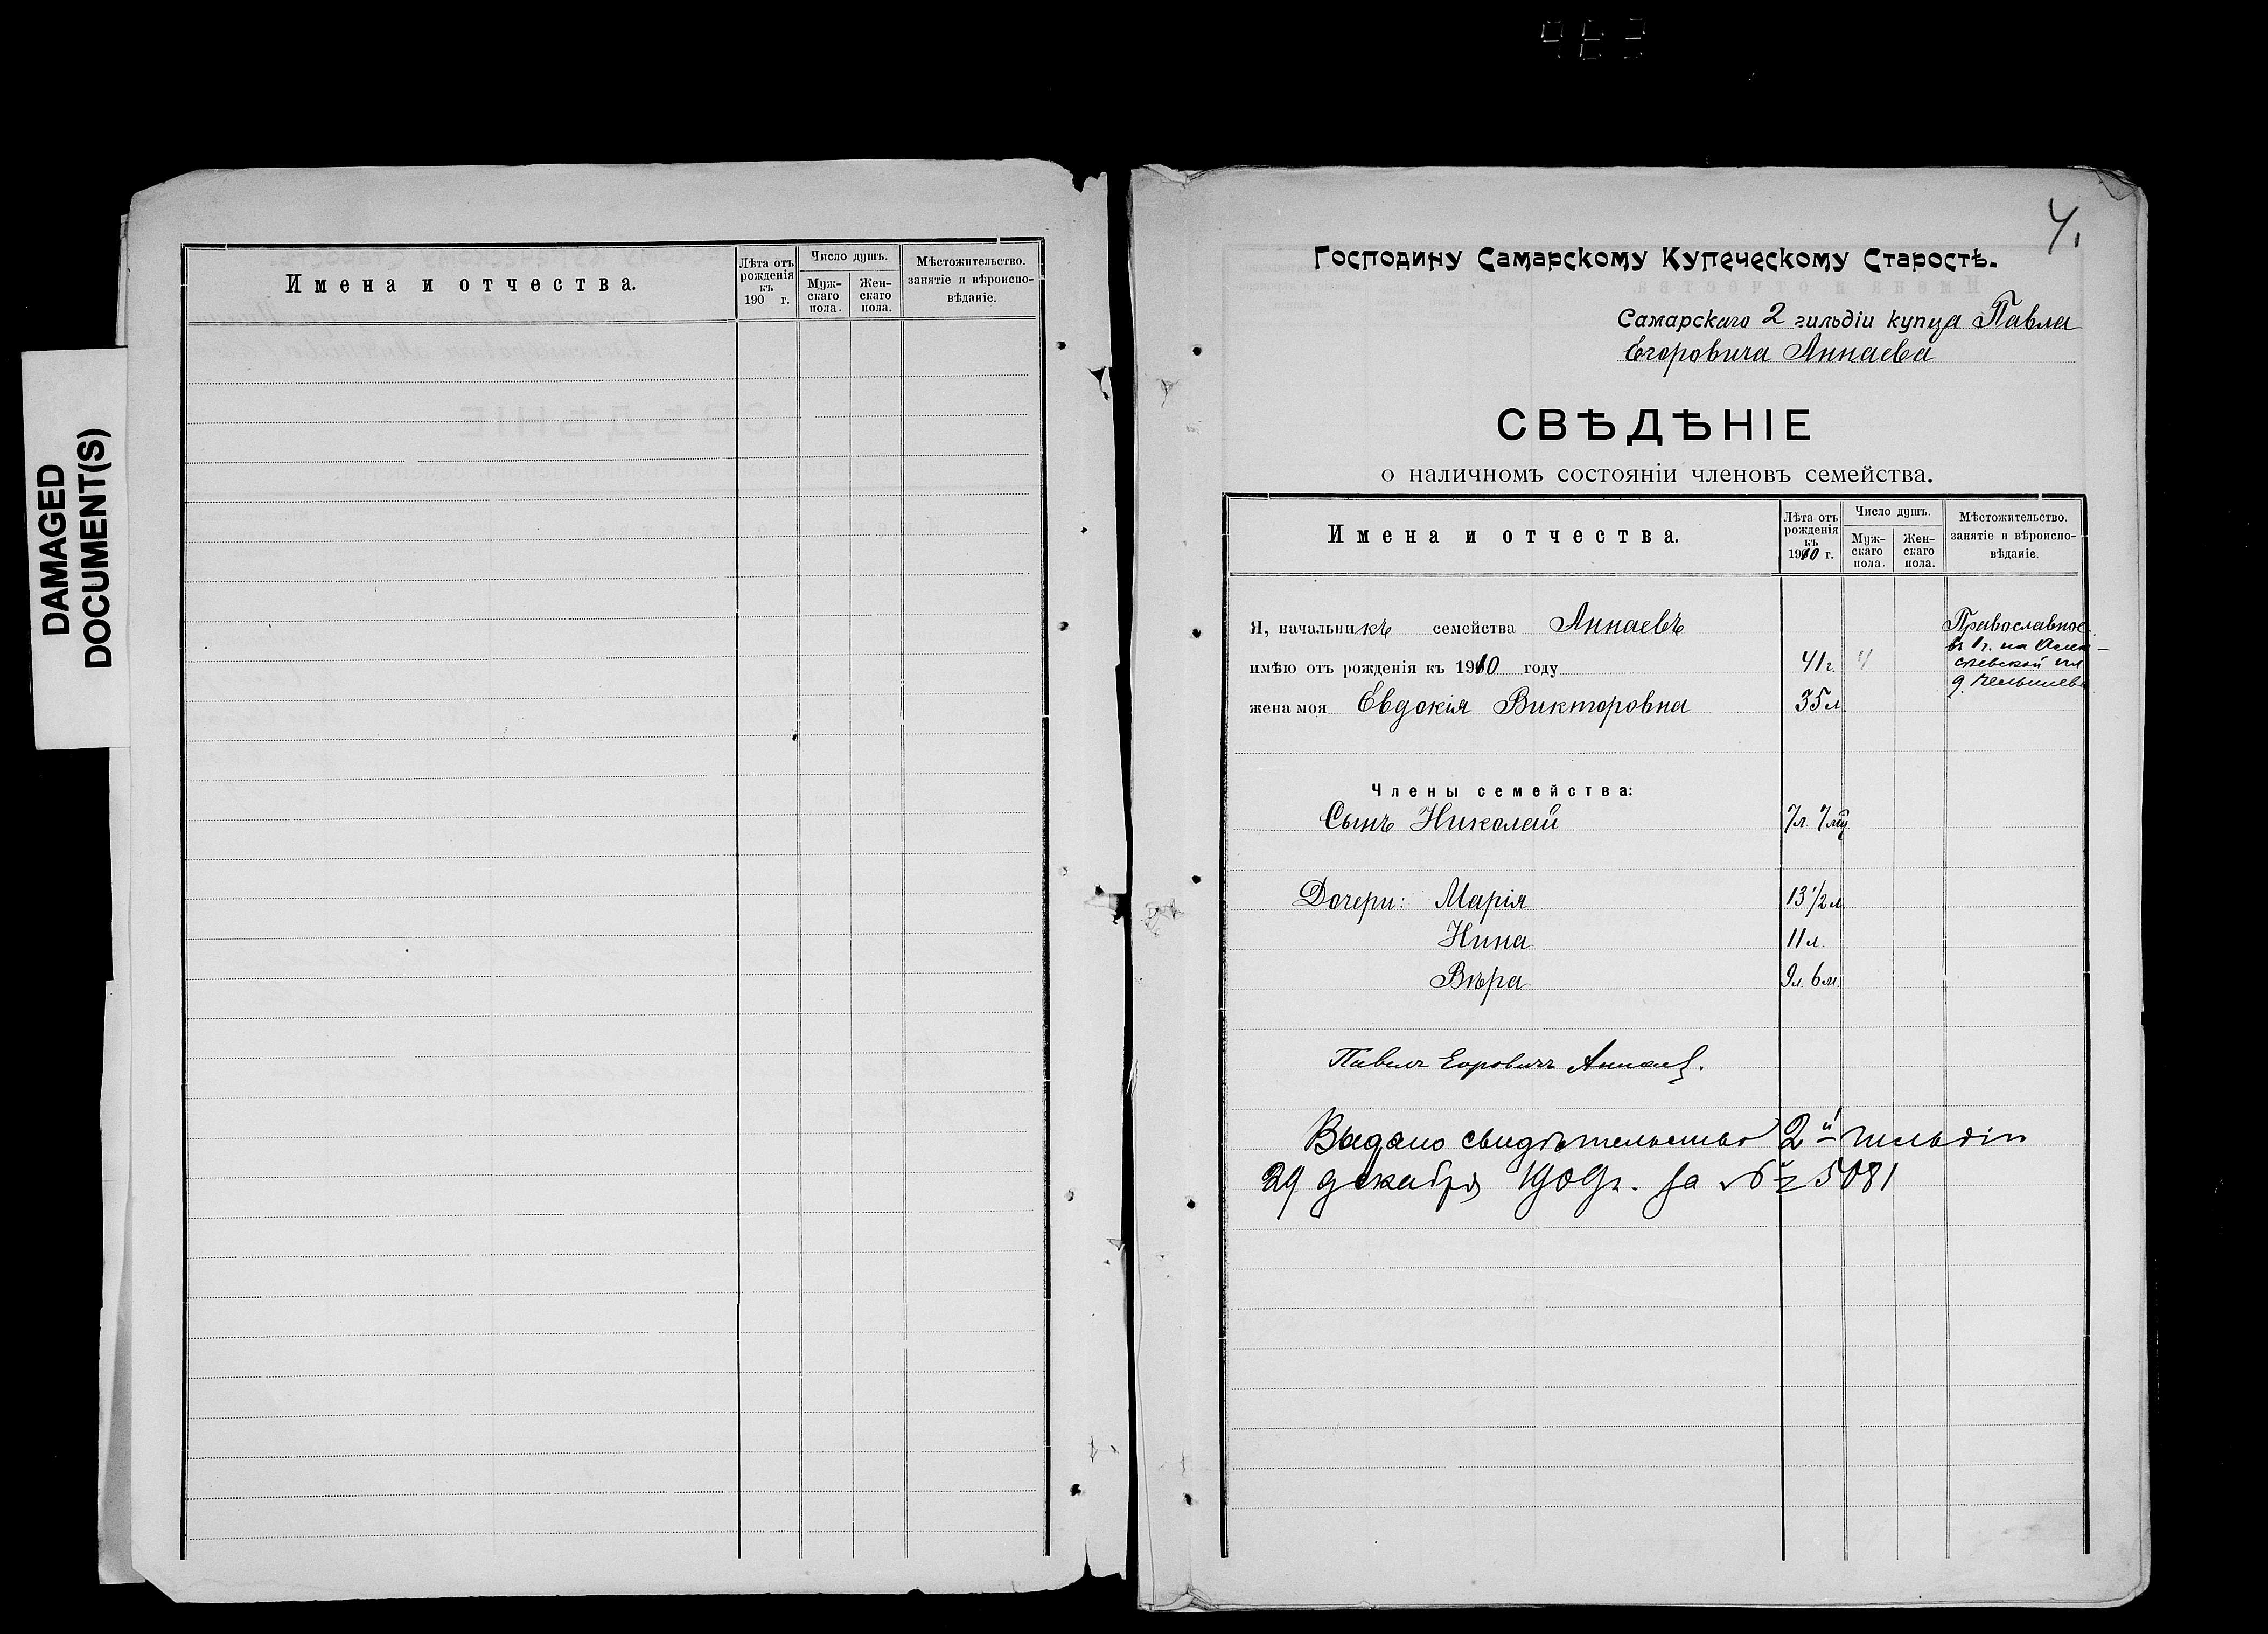 DAMAGED
DOCUMENT(S)
Имена и отчества.
Лѣта отъ рожденія къ 190 г.
Число душъ.
Мужскаго пола.
Женскаго пола.
Мѣстожительство. занятіе и вѣроисповѣданіе.
4.
Господину Самарскому Купеческому Старостѣ.
Самарскаго 2 гильдіи купца Павла
Егоровича Аннаева
СВѢДѢНІЕ
о наличномъ состояніи членовъ семейства.
Имена и отчества.
Лѣта отъ
рожденія
къ
1910 г.
Число душъ.
Муж-
скаго
пола.
Жен-
скаго
пола.
Мѣстожительство.
занятіе и вѣроиспо-
вѣданіе.
Я, начальникъ семейства Аннаевъ
Православное
имѣю отъ рожденія къ 1910 году 41 г. 4
жена моя Евдокія Викторовна 35 л.
Члены семейства:
Сынъ Николай 7 л. 7 мц
Дочери: Марія 13 1/2 л
Нина 11 л.
Вѣра 9 л. 6 м.
Павелъ Егоровичъ Аннаев.
Выдано свидѣтельство 2й гильдіи
29 декабря 1909 г. за № 5081